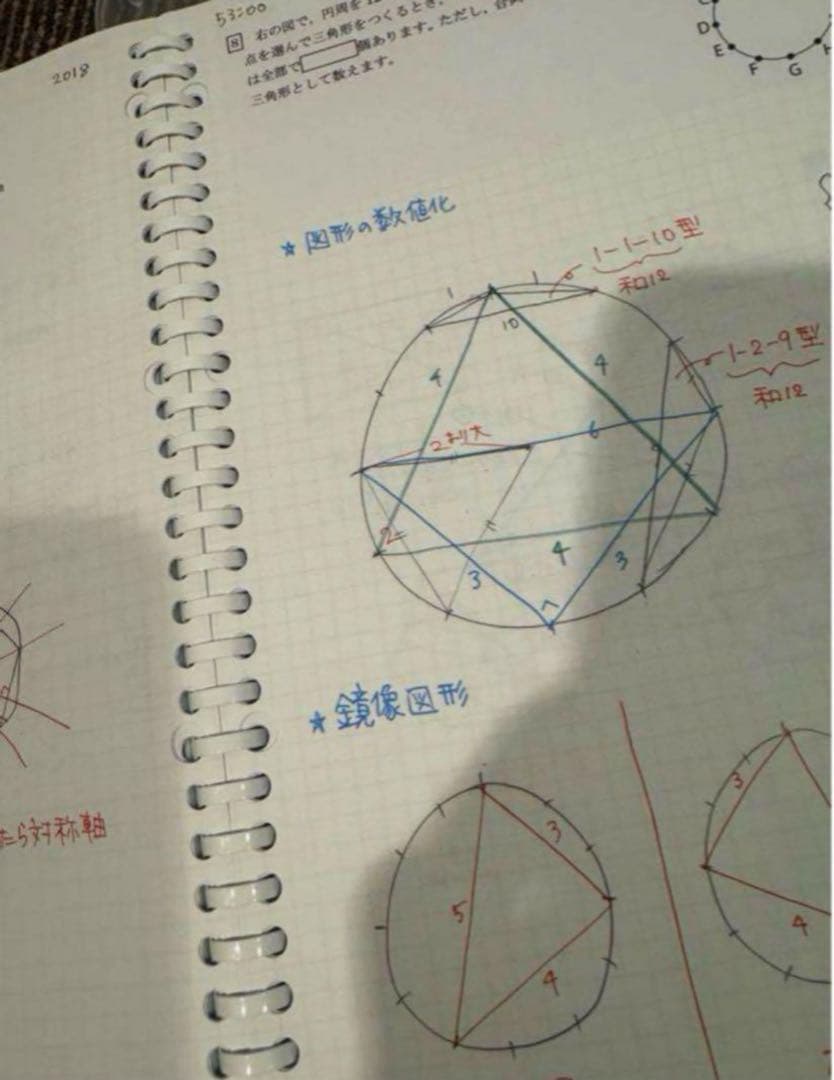 53:00
2018
8 右の図で、円周を12
点を選んで三角形をつくるとき、
は全部で 個あります。ただし、合同
三角形として数えます。
D
E
F
G
H
☆ 図形の数値化
1-1-10型
和12
1
1
10
1-2-9型
和12
4
4
2より大
6
2
4
3
3
☆ 鏡像図形
3
5
4
3
4
たら対称軸